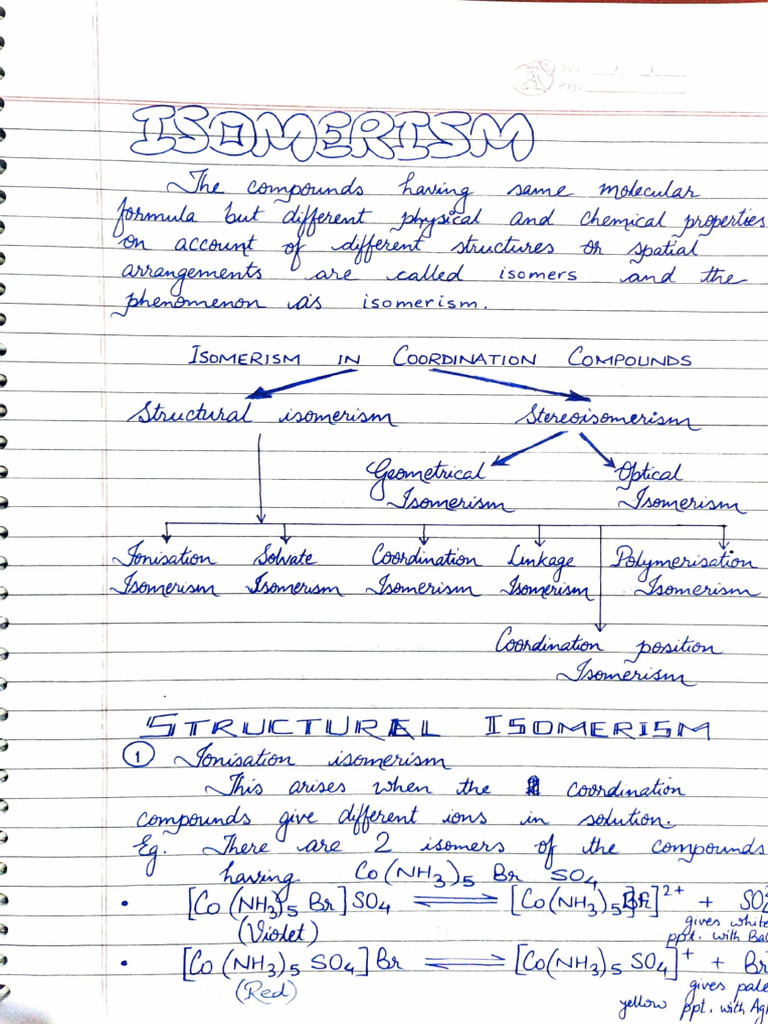 ISOMERISM
The compounds having same molecular
formula but different physical and chemical properties
on account of different structures or spatial
arrangements are called isomers and the
phenomenon as isomerism.
ISOMERISM IN COORDINATION COMPOUNDS
Structural isomerism Stereoisomerism
Geometrical Optical
Isomerism Isomerism
Ionisation Solvate Coordination Linkage Polymerisation
Isomerism Isomerism Isomerism Isomerism Isomerism
Coordination position
Isomerism
STRUCTURAL ISOMERISM
① Ionisation isomerism
This arises when the coordination
compounds give different ions in solution.
Eg. There are 2 isomers of the compounds
having Co(NH3)5 Br SO4
• [Co(NH3)5 Br]SO4 ⇌ [Co(NH3)5Br]2+ + SO2
(Violet) gives white
ppt. with Ba
• [Co(NH3)5 SO4]Br ⇌ [Co(NH3)5 SO4]+ + Br
(Red) gives pale
yellow ppt. with Ag